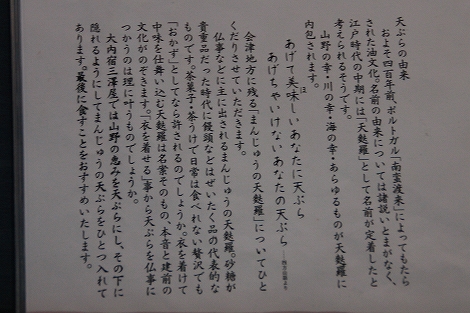 天ぷらの由来
およそ四百年前、ポルトガル「南蛮渡来」によってもたら
された油文化。名前の由来については諸説いとまがなく、
江戸時代の中期には「天麩羅」として名前が定着したと
考えられるそうです。
山野の幸・川の幸・海の幸・あらゆるものが天麩羅に
内包されます。
あげて美味しいあなたに天ぷら
ほ
あげちゃいけないあなたの天ぷら
会津地方に残る「まんじゅうの天麩羅」についてひと
くだりさせていただきます。
仏事などに主に出されるまんじゅうの天麩羅。砂糖が
貴重品だった時代に饅頭などはぜいたく品の代表的な
ものです。茶菓子・茶うけて日常は食べれない贅沢でも
「おかず」としてなら許されるのでしょうか。衣を着けて
中味を仕舞い込む天麩羅は名案そのもの、本音と建前の
文化がのぞきます。〝衣を着せる〟事から天ぷらを仏事に
つかうのは理に叶うものでしょうか。
大内宿三澤屋では山野の恵みを天ぷらにし、その下に
隠れるようにしてまんじゅうの天ぷらをひとつ入れて
あります。最後に食すことをおすすめいたします。